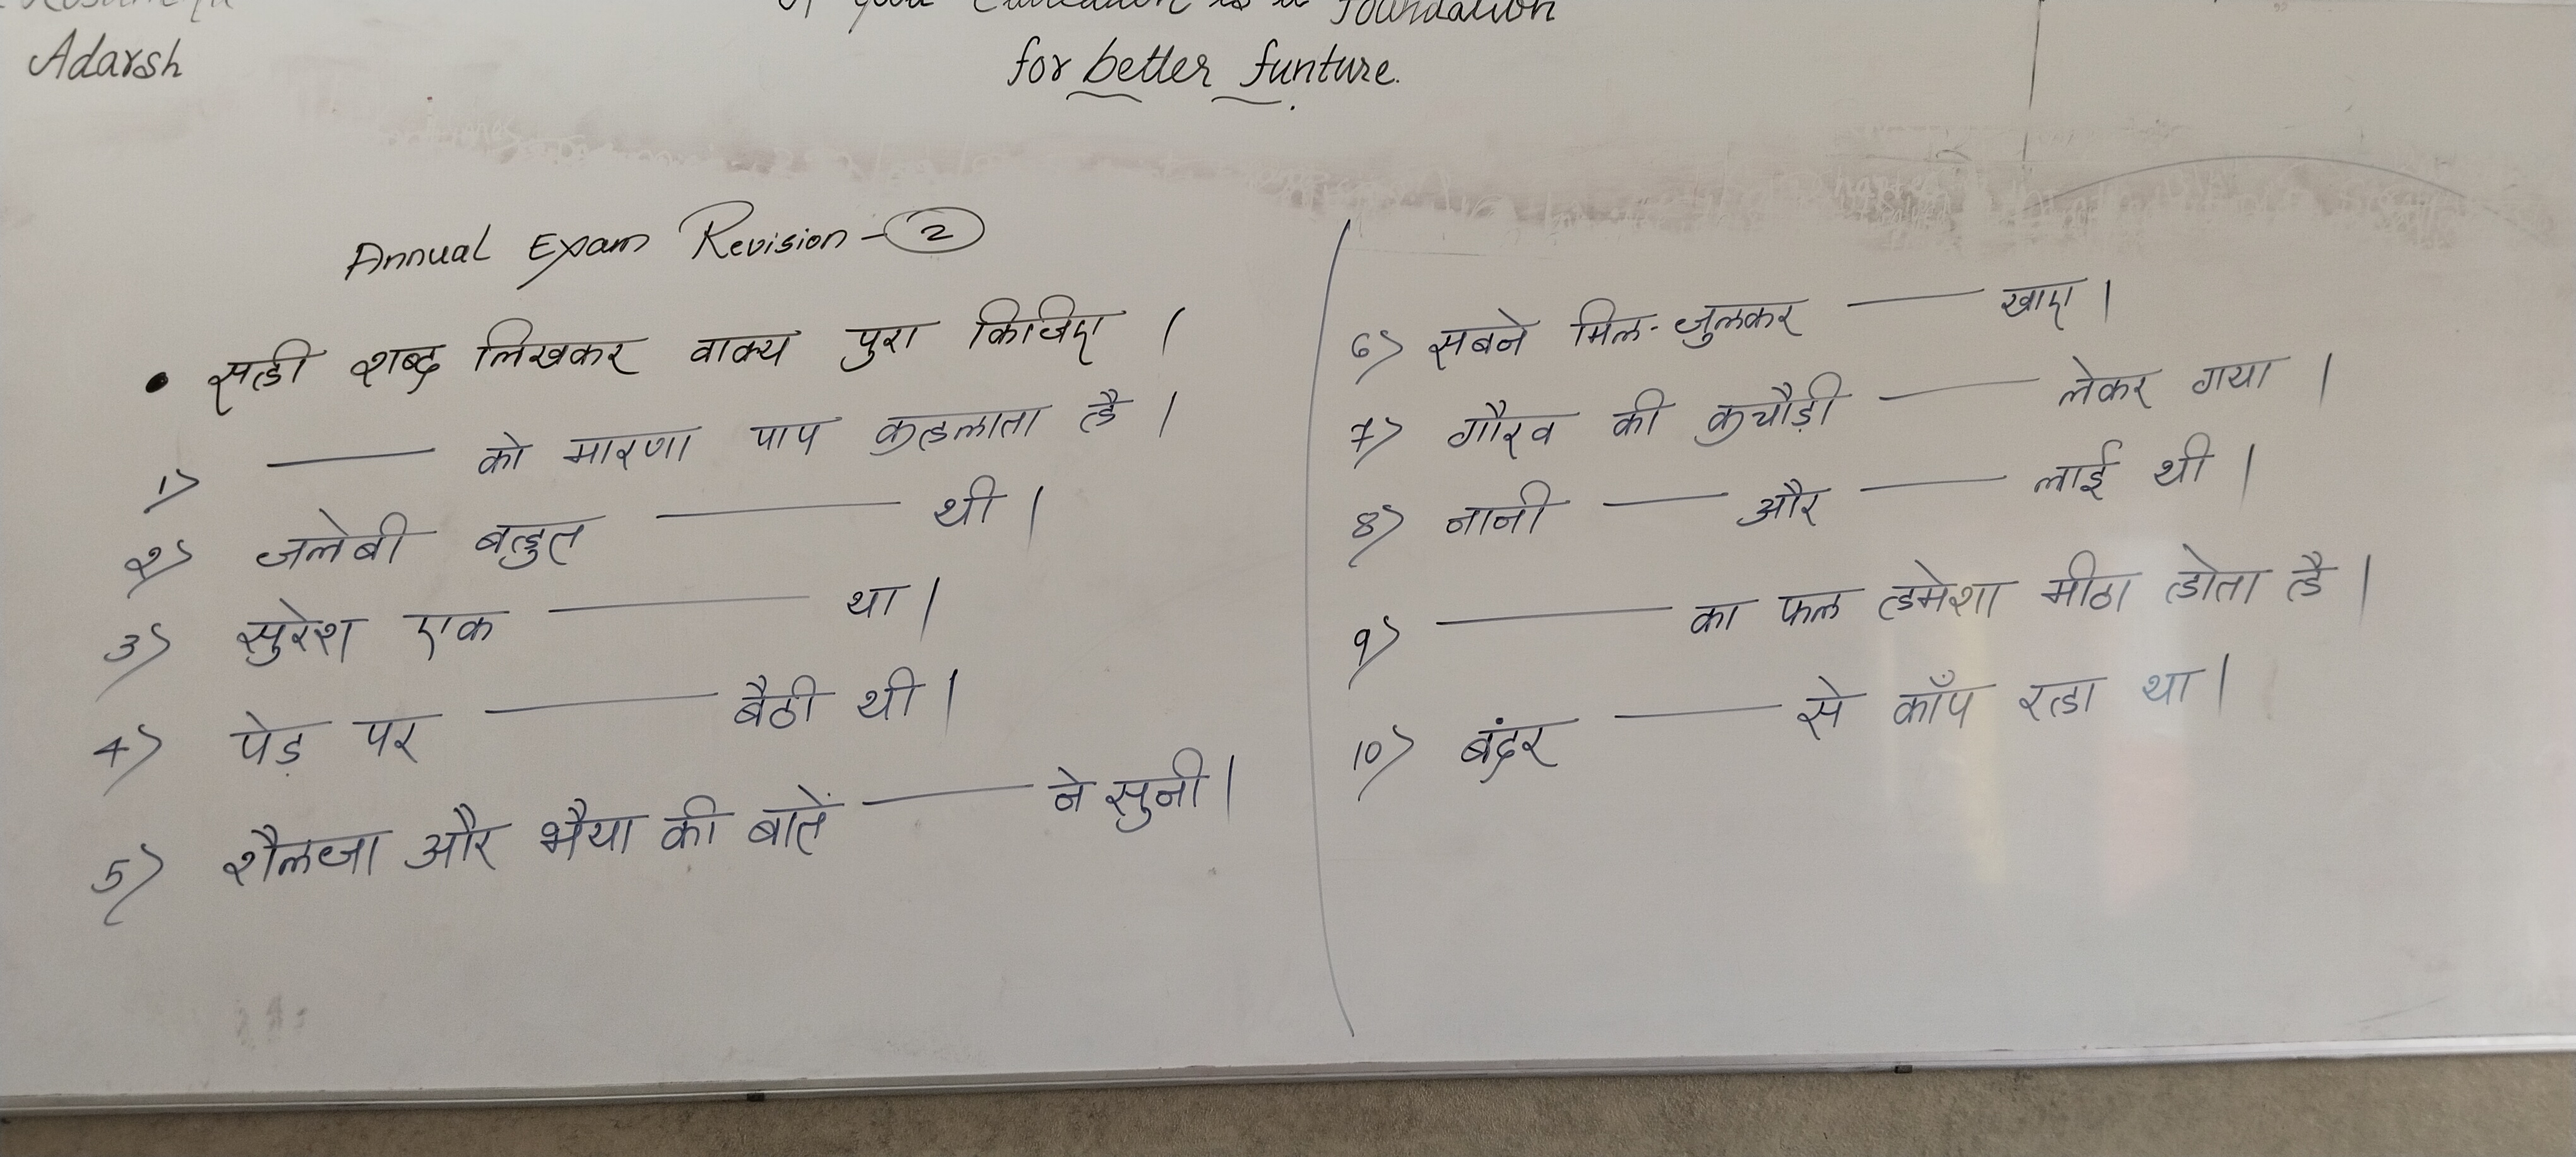 Adarsh
foundation
for better funture.
Annual Exam Revision - 2
• सही शब्द लिखकर वाक्य पुरा किजिए |
1) ——— को मारणा पाप कहलाता है |
2) जलेबी बहुत ——— थी |
3) सुरेश एक ——— था |
4) पेड़ पर ——— बैठी थी |
5) शैलजा और भैया की बातें ——— ने सुनी |
6) सबने मिल-जुलकर ——— खाए |
7) गौरव की कचौड़ी ——— लेकर गया |
8) नानी ——— और ——— लाई थी |
9) ——— का फल हमेशा मीठा होता है |
10) बंदर ——— से काँप रहा था |